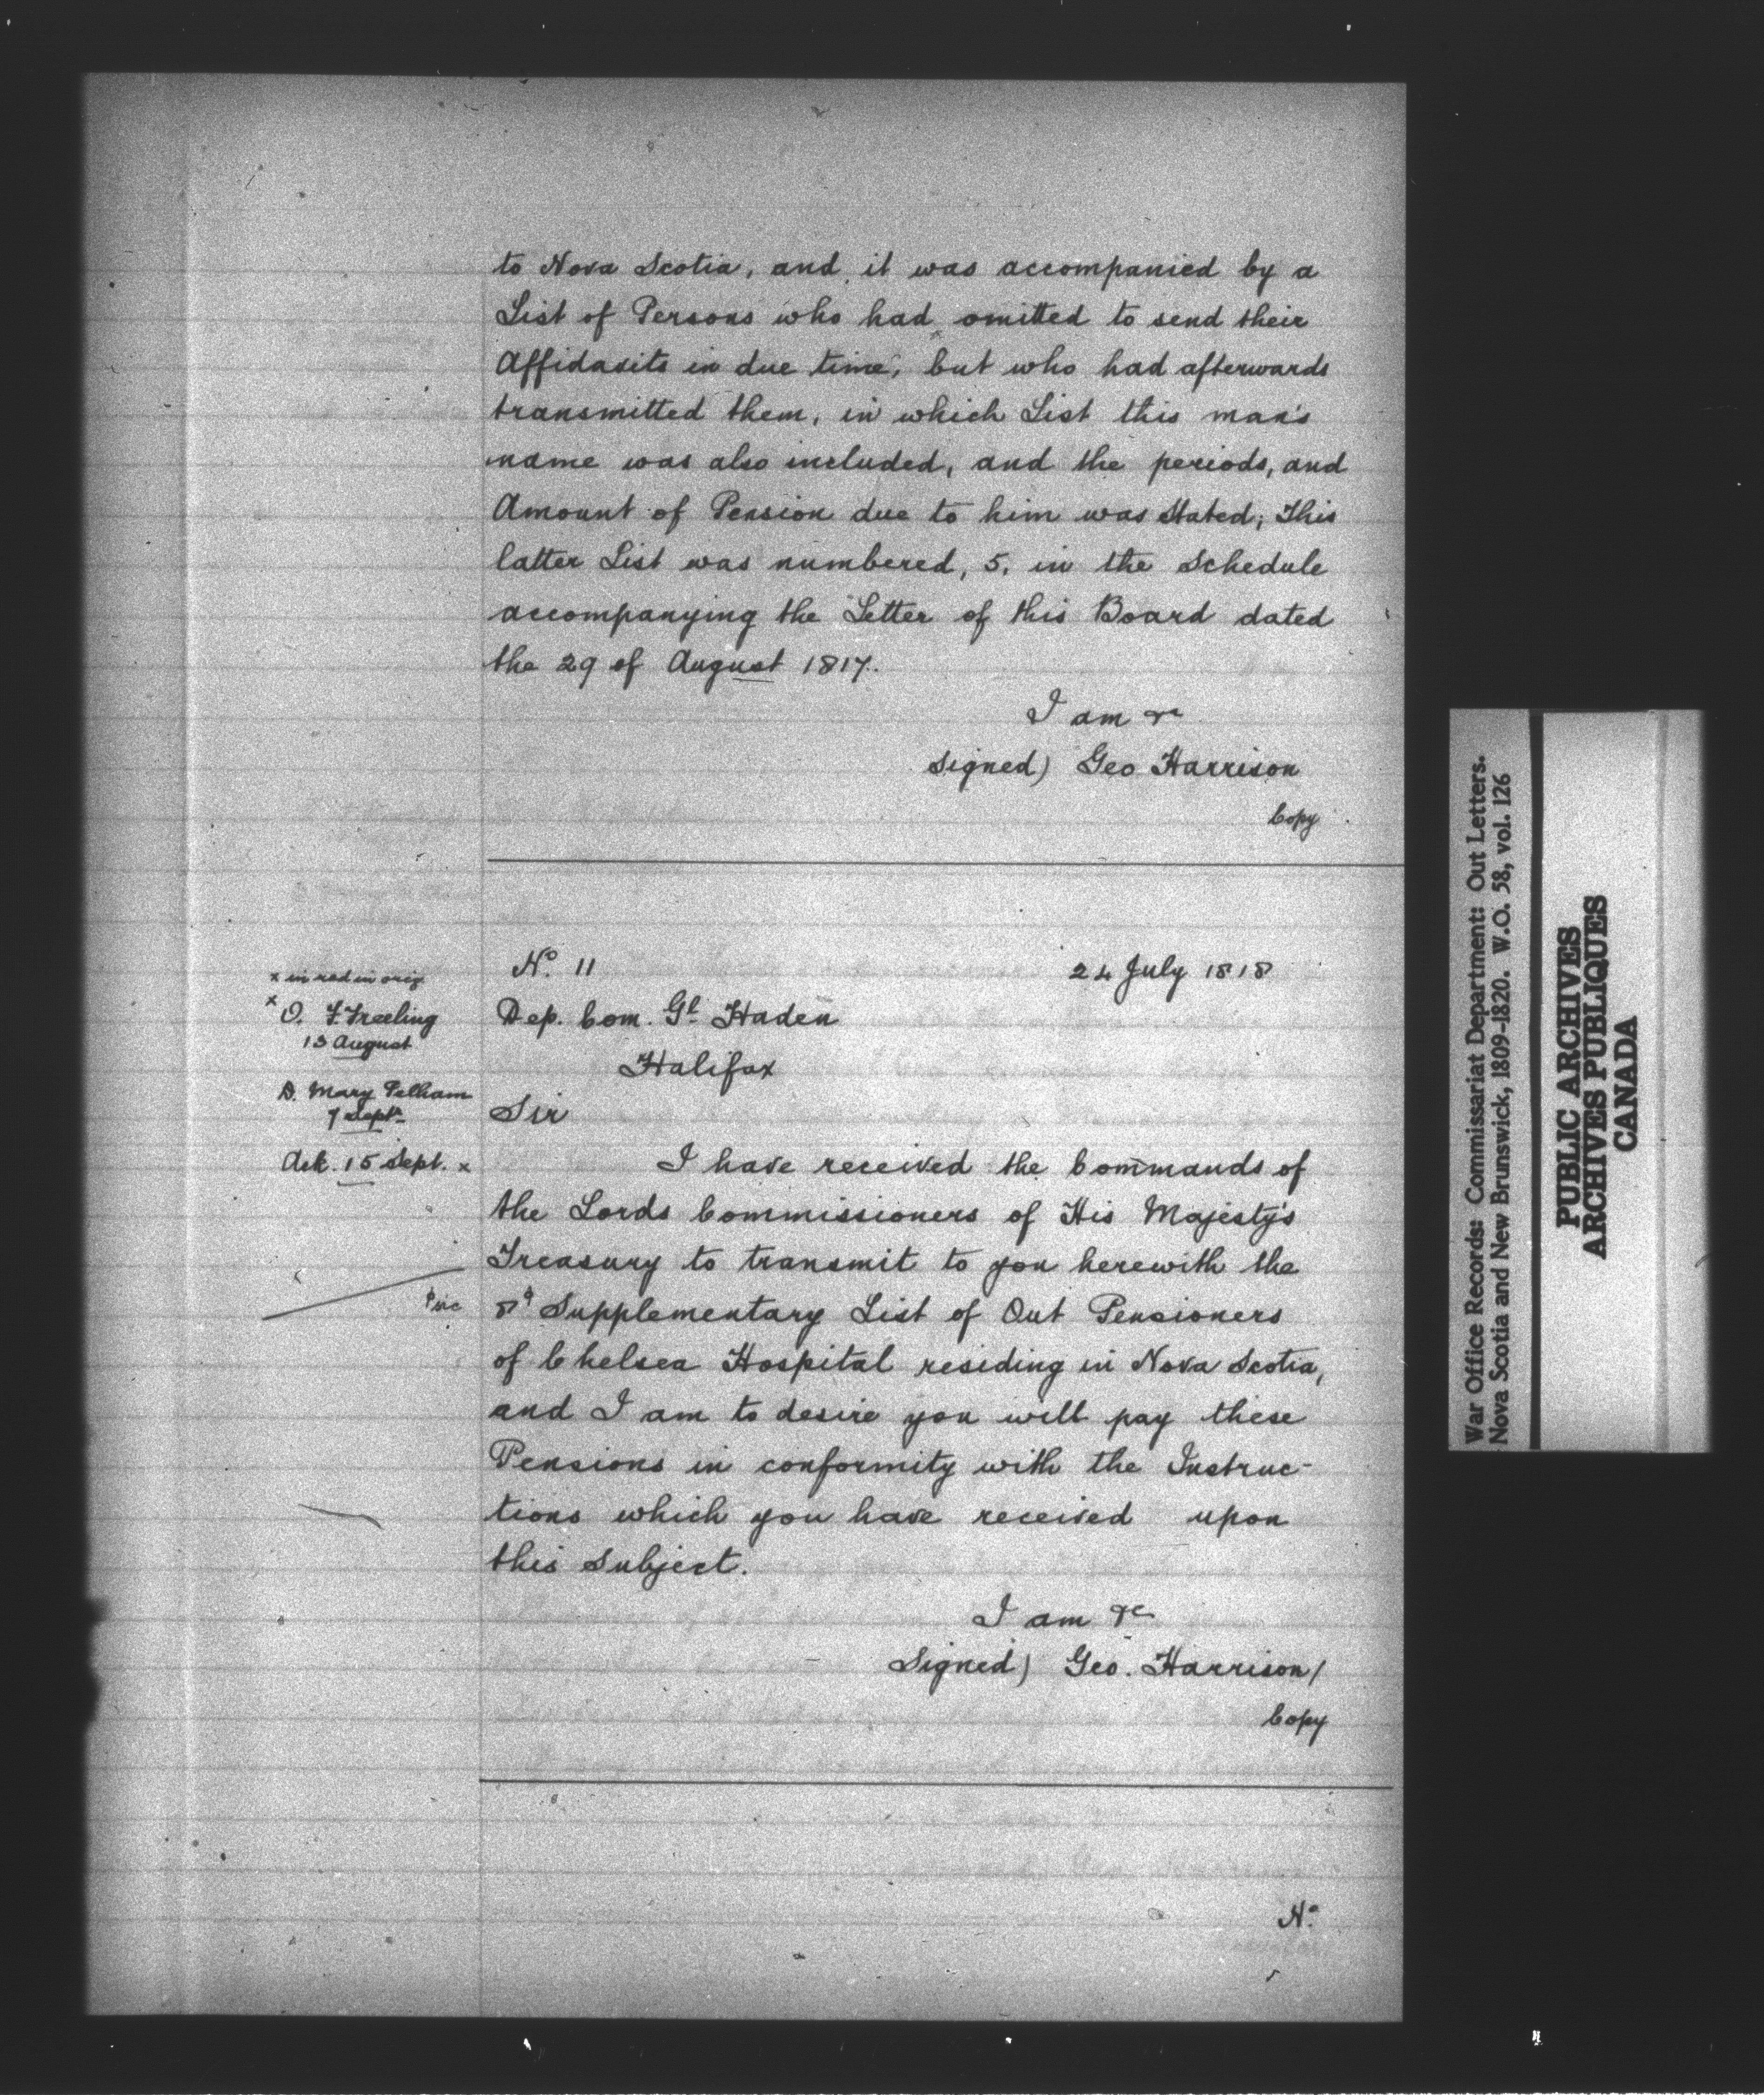 to Nova Scotia, and it was accompanied by a
List of Persons who had omitted to send their
Affidavits in due time, but who had afterwards
transmitted them, in which List this man's
name was also included, and the periods, and
Amount of Pension due to him was Stated; This
latter List was numbered, 5, in the Schedule
accompanying the Letter of this Board dated
the 29 of August 1817.
I am &c
Signed) Geo Harrison
Copy
x in red in orig
x O. F. Freeling
13 August
D. Mary Pelham
7 Sept.
Ack. 15 Sept. x
No. 11
24 July 1818
Dep. Com. Gl. Haden
Halifax
Sir
I have received the Commands of
the Lords Commissioners of His Majesty's
Treasury to transmit to you herewith the
Supplementary List of Out Pensioners
of Chelsea Hospital residing in Nova Scotia,
and I am to desire you will pay these
Pensions in conformity with the Instruc-
tions which you have received upon
this Subject.
I am &c
Signed) Geo. Harrison/
Copy
No.
War Office Records: Commissariat Department: Out Letters.
Nova Scotia and New Brunswick, 1809-1820. W.O. 58, vol. 126
PUBLIC ARCHIVES
ARCHIVES PUBLIQUES
CANADA